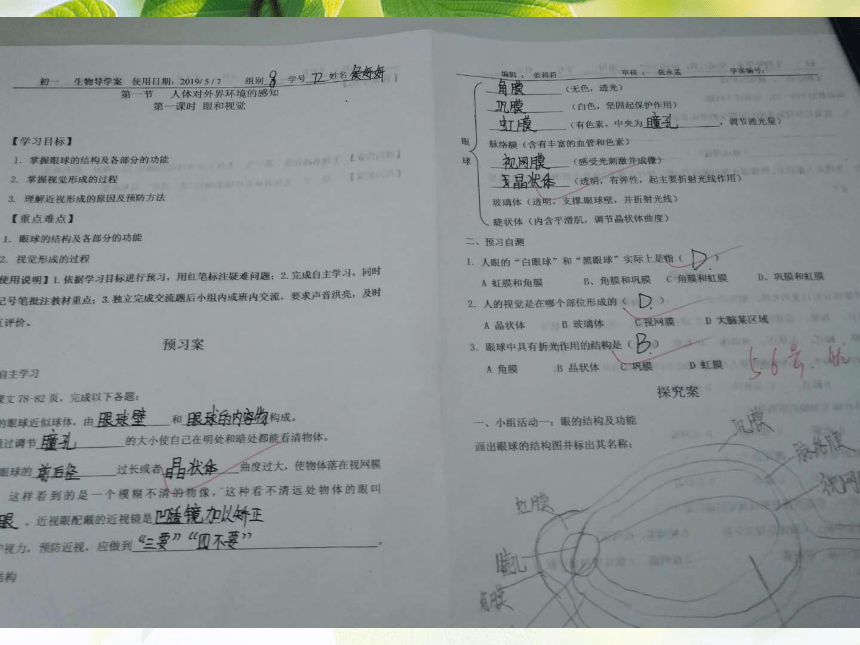 初一 生物导学案 使用日期：2019/5/7 组别 8 学号 72 姓名
第一节 人体对外界环境的感知
第一课时 眼和视觉
【学习目标】
1. 掌握眼球的结构及各部分的功能
2. 掌握视觉形成的过程
3. 理解近视形成的原因及预防方法
【重点难点】
1. 眼球的结构及各部分的功能
2. 视觉形成的过程
使用说明】1.依据学习目标进行预习，用红笔标注疑难问题；2.完成自主学习，同时
记号笔批注教材重点；3.独立完成交流题后小组内或班内交流，要求声音洪亮，及时
评价。
预习案
自主学习
课文78-82页，完成以下各题：
的眼球近似球体，由 眼球壁 和 眼球的内容物 构成，
过调节 瞳孔 的大小使自己在明处和暗处都能看清物体。
眼球的 前后径 过长或者 晶状体 曲度过大，使物体落在视网膜
这样看到的是一个模糊不清的物像，这种看不清远处物体的眼叫
眼 、近视眼配戴的近视镜是 凹透镜加以矫正
视力，预防近视，应做到 “三要”“四不要” 。
结构
编辑： 姜莉莉 审核： 张永孟 学案编号：
角膜 （无色，透光）
巩膜 （白色，坚固起保护作用）
虹膜 （有色素，中央为 瞳孔 ，调节通光量）
眼 脉络膜（含有丰富的血管和色素）
球 视网膜 （感受光刺激并成像）
晶状体 （透明，有弹性，起主要折射光线作用）
玻璃体（透明，支撑眼球壁，并折射光线）
睫状体（内含平滑肌，调节晶状体曲度）
二、预习自测
1. 人眼的“白眼球”和“黑眼球”实际上是指（ D ）
A 虹膜和角膜 B、角膜和巩膜 C 角膜和虹膜 D、巩膜和虹膜
2. 人的视觉是在哪个部位形成的（ D ）
A 晶状体 B 玻璃体 C 视网膜 D 大脑某区域
3. 眼球中具有折光作用的结构是（ B ）
A 角膜 B 晶状体 C 巩膜 D 虹膜
5.6号
探究案
一、小组活动一：眼的结构及功能
画出眼球的结构图并标出其名称：
巩膜
脉络膜
视网
虹膜
瞳孔
角膜